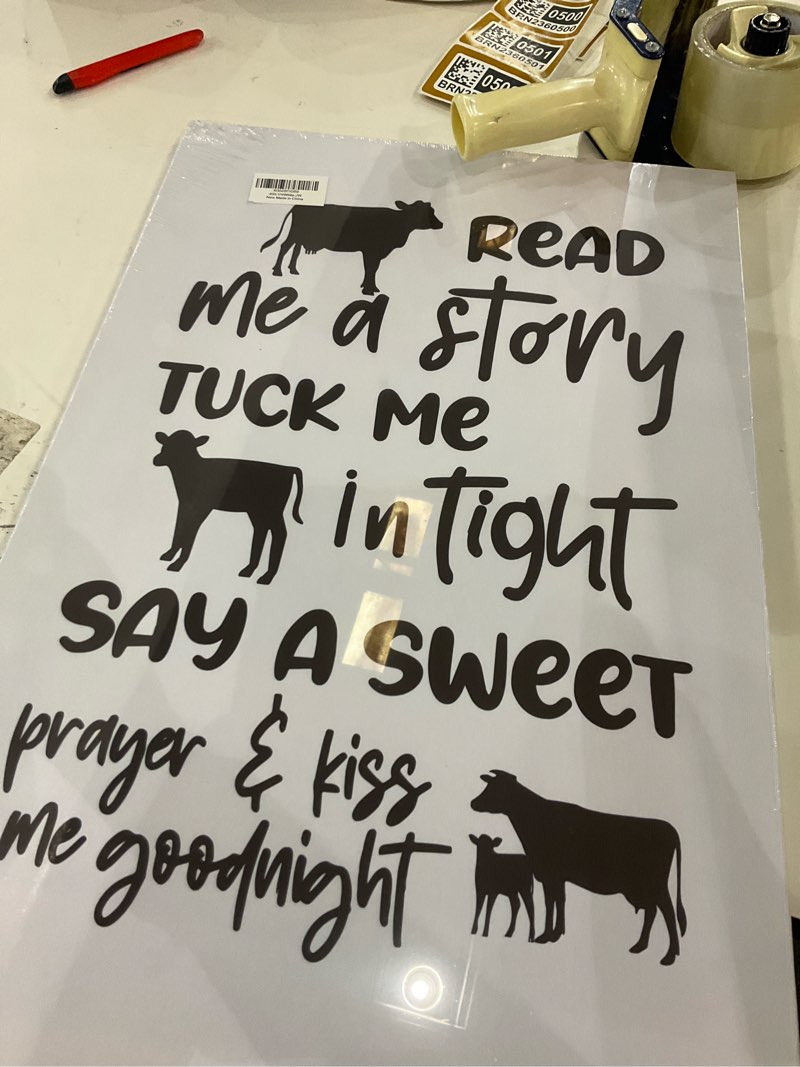 0500
BRN2360500
0501
BRN2360501
New Made in China
READ
me a story
TUCK Me
in Tight
SAY A SWeeT
prayer & kiss
me goodnight